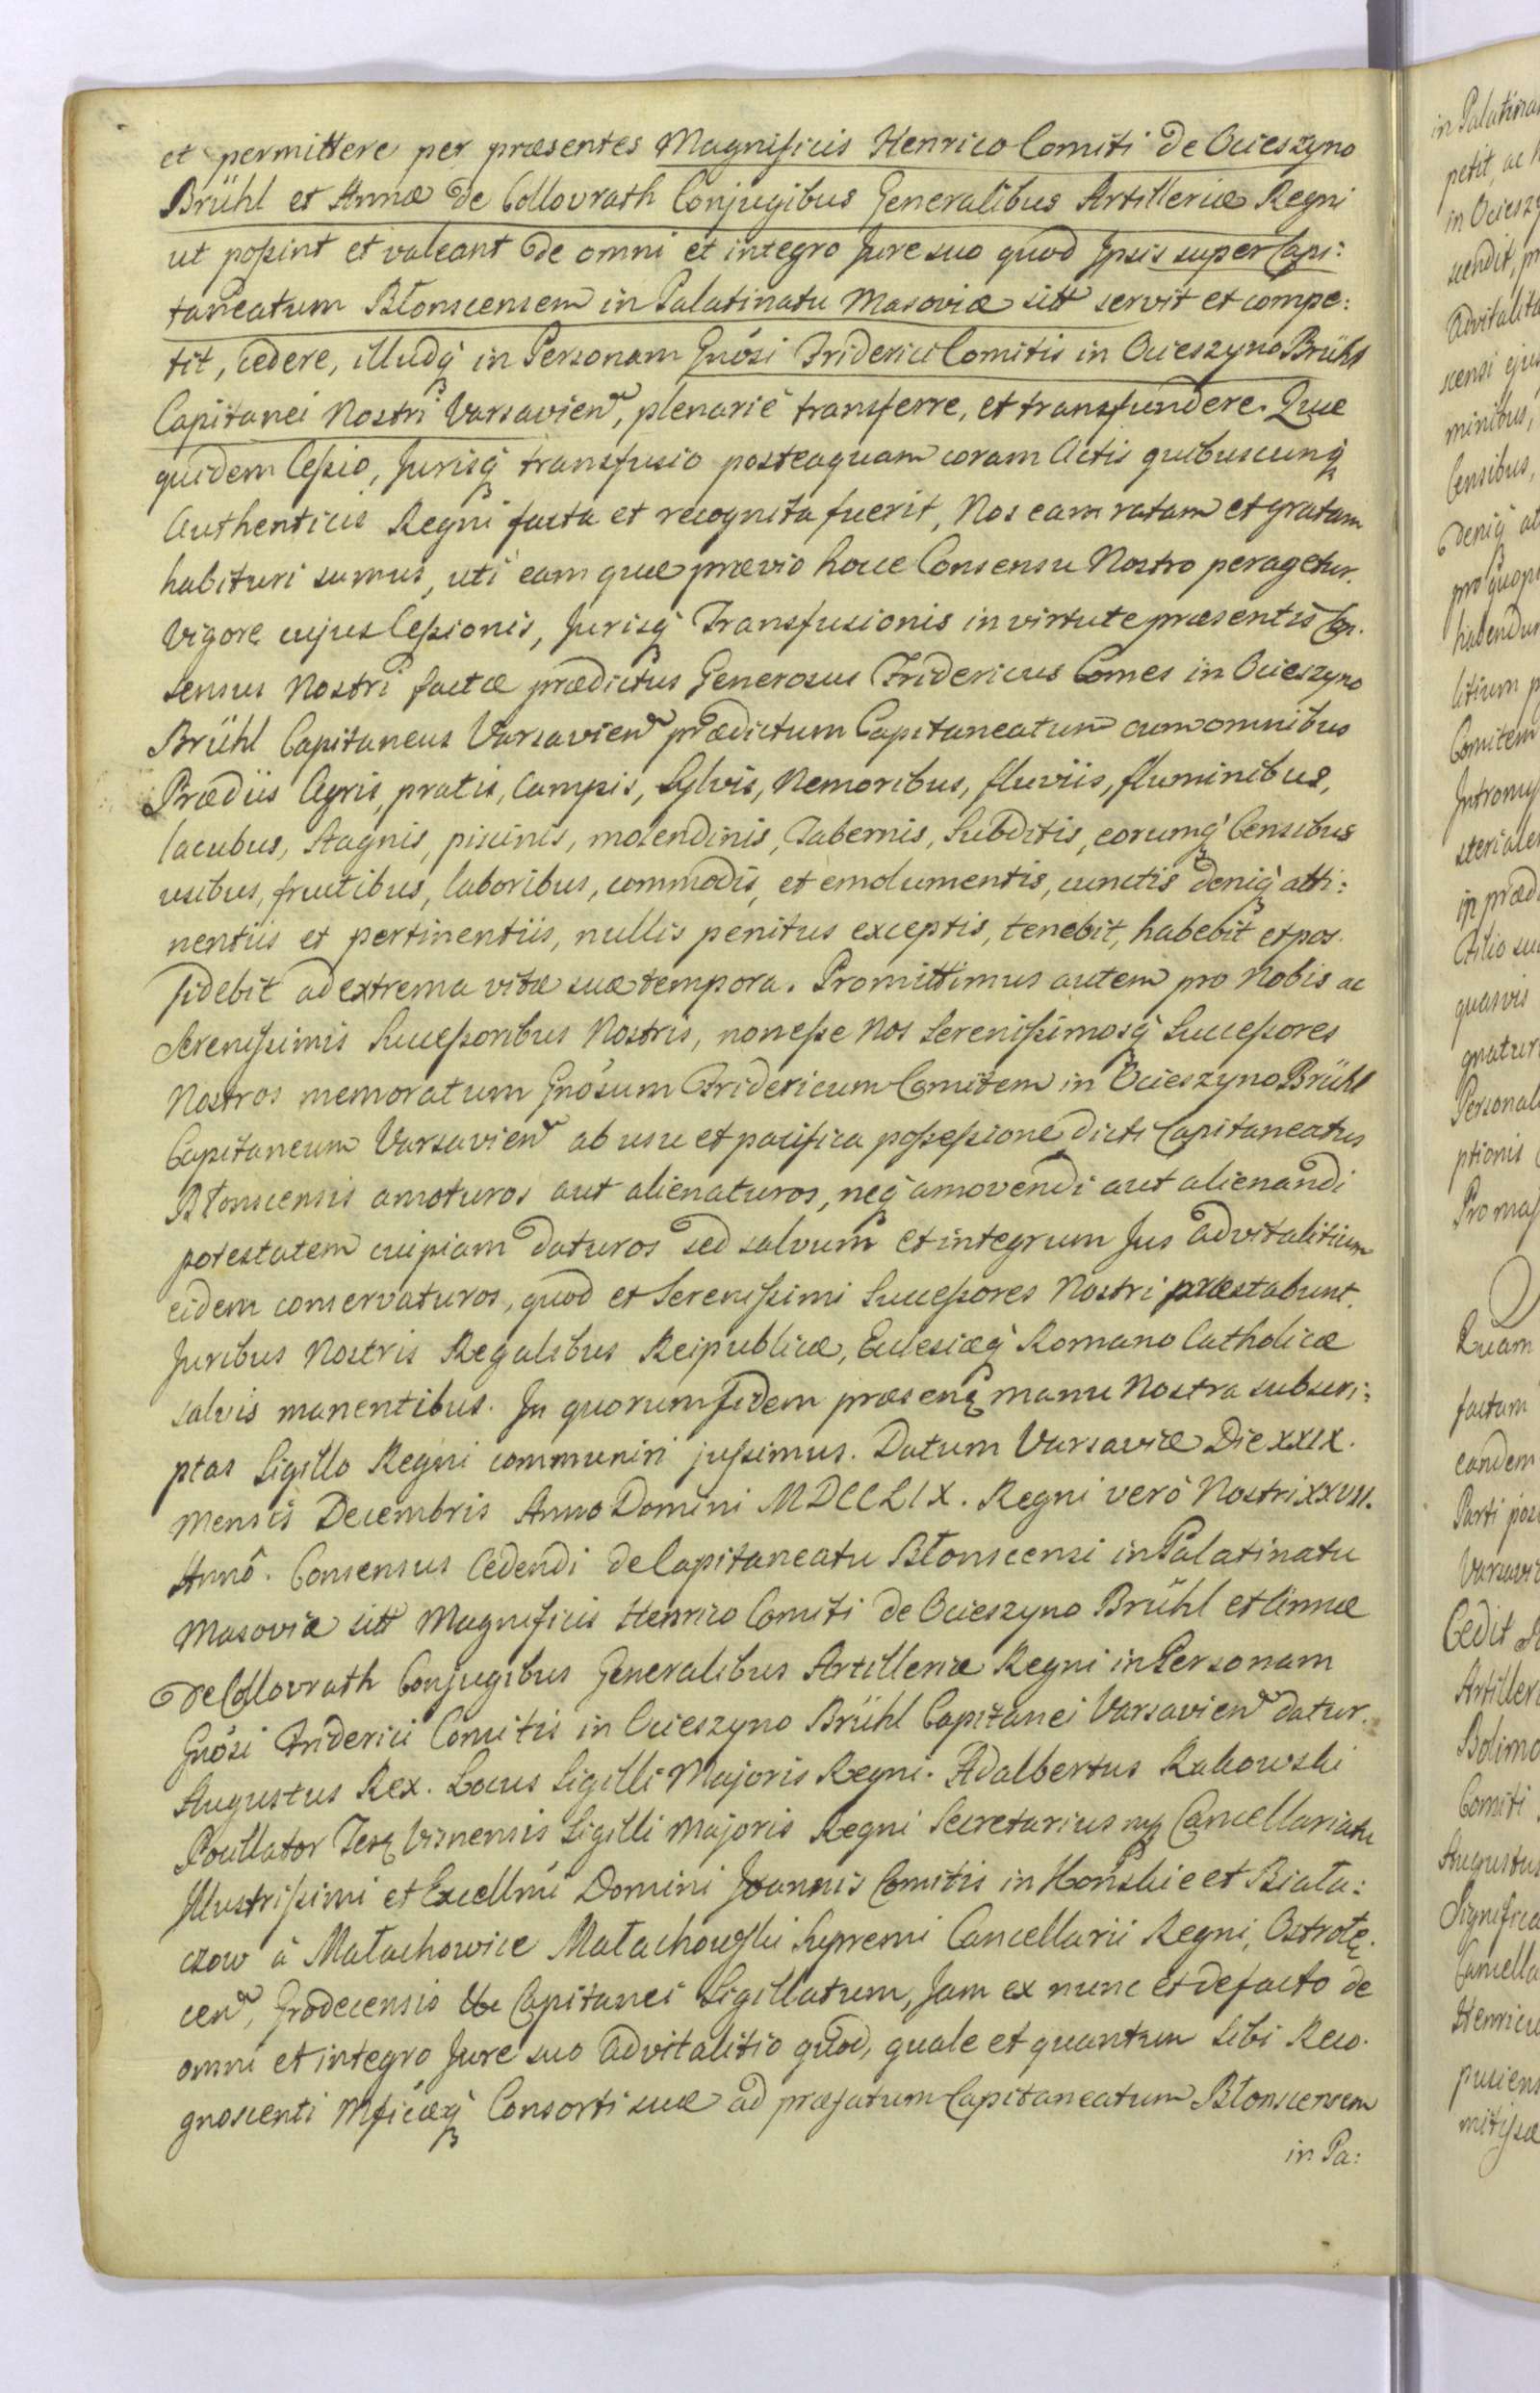 et permittere per præsentes Magnificis Henrico Comiti de Ocieszyno
Brühl et Annæ de Collovrath Conjugibus Generalibus Artilleriæ Regni
ut poßint et valeant de omni et integro Jure suo quod Ipsis super Capi:
taneatum Błonscensem in Palatinatu Masoviæ sitt servit et compe:
tit, cedere, illudq́ in Personam Gnósi Friderici Comitis in Ocieszyno Brühl
Capitanei Nostri Varsavien, plenariè transferre, et transfundere. Quæ
quidem Ceßio, Jurisq́ transfusio posteaquam coram Actis quibuscunq́
Authenticis Regni facta et recognita fuerit, Nos eam ratam et gratam
habituri sumus, uti eam quæ prævio hocce Consensu Nostro peragetur.
Vigore cujus Ceßionis, Jurisq́ Transfusionis in virtute præsentis Con.
sensus Nostri factæ prædictus Generosus Fridericus Comes in Ocieszyno
Brühl Capitaneus Varsavien prædictum Capitaneatum cum omnibus
Prædiis Agris, pratis, Campis, Sylvis, Nemoribus, fluviis, fluminibus,
lacubus, Stagnis, piscinis, molendinis, Tabernis, Subditis, eorumq́ Censibus
usibus, fructibus, laboribus, commodis, et emolumentis, cunctis deniq́ atti:
nentiis et pertinentiis, nullis penitus exceptis, tenebit, habebit et pos.
sidebit ad extrema vitæ suæ tempora. Promittimus autem pro Nobis ac
Serenißimis Succeßoribus Nostris, non eße Nos Serenißimosq́ Succeßores
Nostros memoratum Gnósum Fridericum Comitem in Ocieszyno Brühl
Capitaneum Varsavien ab usu et pacifica poßeßione dicti Capitaneatus
Błonscensis amoturos aut alienaturos, neq́ amovendi aut alienandi
potestatem cuipiam daturos sed salvum et integrum Jus advitalitium
eidem conservaturos, quod et Serenißimi Succeßores Nostri præstabunt.
Juribus Nostris Regalibus Reipublicæ, Eclesiæq́ Romano Catholicæ
salvis manentibus. In quorum fidem præsenꝫ manu Nostra subscri:
ptas Sigillo Regni communiri jußimus. Datum Varsaviæ Die XXIX.
Mensis Decembris Anno Domini MDCCLIX. Regni verò Nostri XXVII.
Annô. Consensus Cedendi de Capitaneatu Błonscensi in Palatinatu
Masoviæ sitt Magnificis Henrico Comiti de Ocieszyno Brühl et Annæ
de Collovrath Conjugibus Generalibus Artilleriæ Regni in Personam
Gnósi Friderici Comitis in Ocieszyno Brühl Capitanei Varsavien datur.
Augustus Rex. Locus Sigilli Majoris Regni. Adalbertus Rakowski
Pocillator Terꝫ Visnensis Sigilli Majoris Regni Secretarius mp Cancellariatu
Illustrißimi et Excellmi Domini Joannis Comitis in Końskie et Biała:
czow à Małachowice Małachowski Supremi Cancellarii Regni, Ostrołę.
cen, Grodecensis &c Capitanei Sigillatum, Jam ex nunc et de facto de
omni et integro Jure suo advitalitio quod, quale et quantum Sibi Reco.
gnoscenti Mficæq́ Consorti suæ ad præfatum Capitaneatum Błonscensem
in Pa: